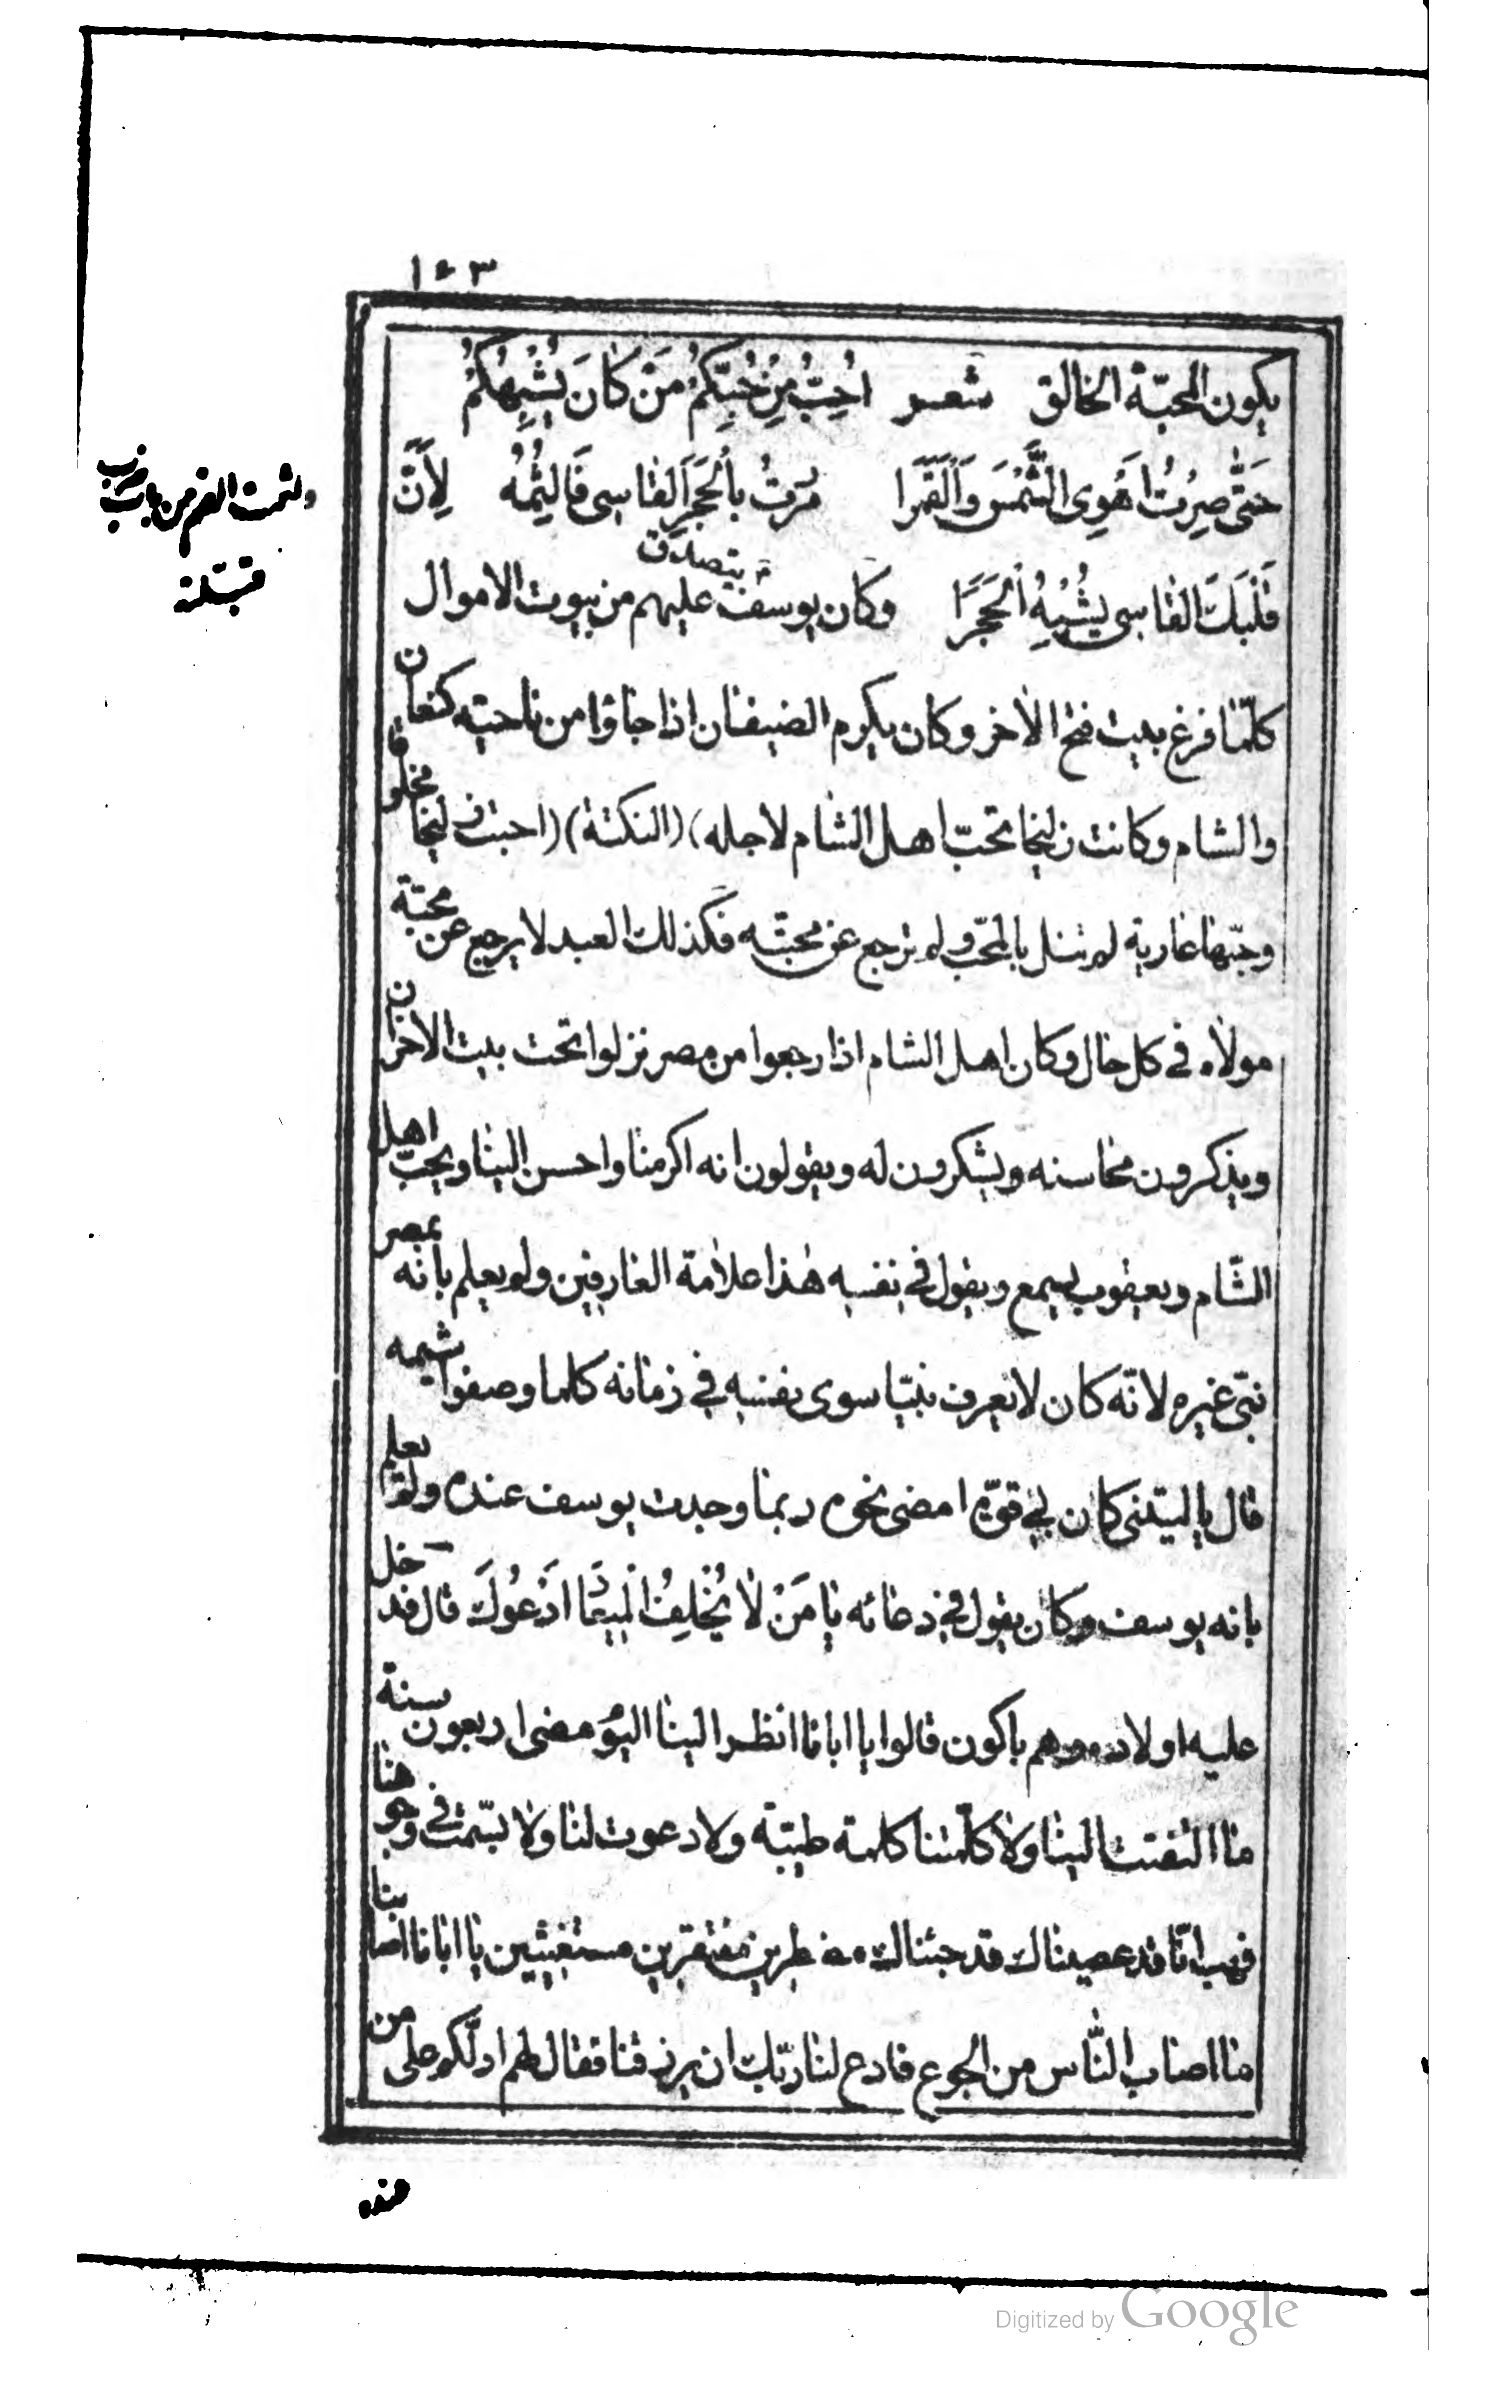 ١٤٣
يكون المحبّة الخالق شعر اُحِبُّ مِنْ حُبِّكُمْ مَنْ كَانَ يُشْبِهُكُمْ
حَتّٰى صِرْتُ اَهْوِى الشَّمْسَ وَالْقَمَرا مَرَرْتُ بِالْحَجَرِ الْقَاسِى فَالْثِمُهُ لِاَنَّ
قَلْبَكَ الْقَاسِى يُشْبِهُ الْحَجَرَا وكان يوسف يتصدق عليهم من بيوت الاموال
كلّما فرغ بيت فتح الاخر وكان يكرم الضيفان اذا جاؤا من ناحيته كنعان
والشام وكانت زليخا تحبّ اهل الشام لاجله) (النكتة) (احبت زليخا مخلوقا
وحبّها عارية لم تنل بالمحبّ ولم ترجع عن محبته فكذلك العبد لا يرجع عن محبّة
مولاه في كل حال وكان اهل الشام اذا رجعوا من مصر نزلوا تحت بيت الاحزان
ويذكرون محاسنه ويشكرون له ويقولون انه اكرمنا واحسن الينا ويحبّ اهل
الشّام ويعقوب يسمع ويقول في نفسه هذا علامة العارفين ولم يعلم بانه بمصر
نبّى غيره لانّه كان لا يعرف نبيّا سوى نفسه في زمانه كلما وصفوا شيمه
قال يا ليتنى كان لي قوّة امضى نحوه ربما وجدت يوسف عنده ولم يعلم
بانه يوسف وكان يقول في دعائه يا مَنْ لا يُخْلِفُ الْمِيعَادَ اَدْعُوكَ قال فدخل
عليه اولاده وهم باكون قالوا يا ابانا انظر الينا اليوم مضى اربعون سنة
ما التفتت الينا ولا كلّمتنا كلمة طيبّة ولا دعوت لنا ولا تبسّمت في وجوهنا
فهب انّا قد عصيناك قد جئناك مضطرين مفتقرين مستغيثين يا ابانا اصابنا
ما اصاب النّاس من الجوع فادع لنا ربّك ان يرزقنا فقال لهم ادلّكم على من
هذه
ولثمت الفم من باب ضرب
قبّلته
Digitized by Google